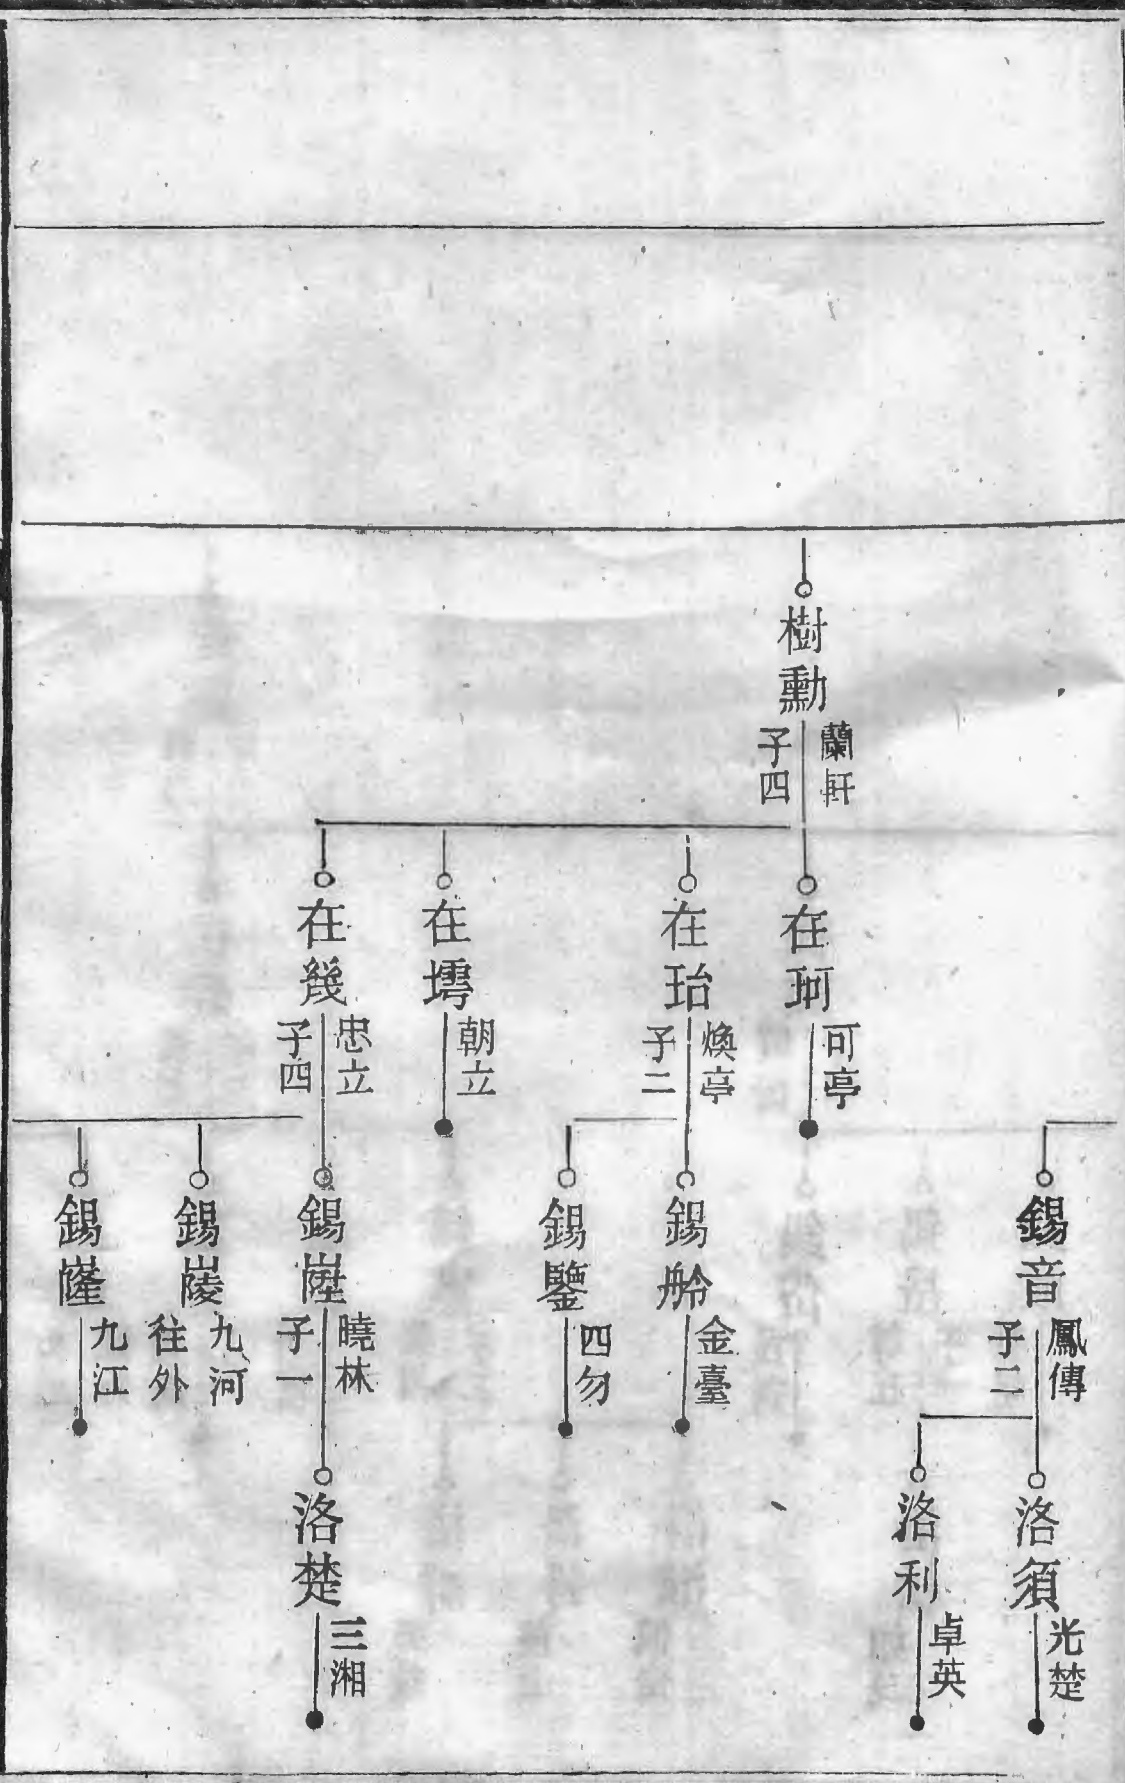 樹勳
蘭軒
子四
在珂
可亭
在珆
煥亭
子二
在壖
朝立
在幾
忠立
子四
錫音
鳳傳
子二
錫舲
金臺
錫鑒
四勿
錫
曉林
子一
錫崚
九河
往外
錫
九江
洛須
光楚
洛利
卓英
洛楚
三湘